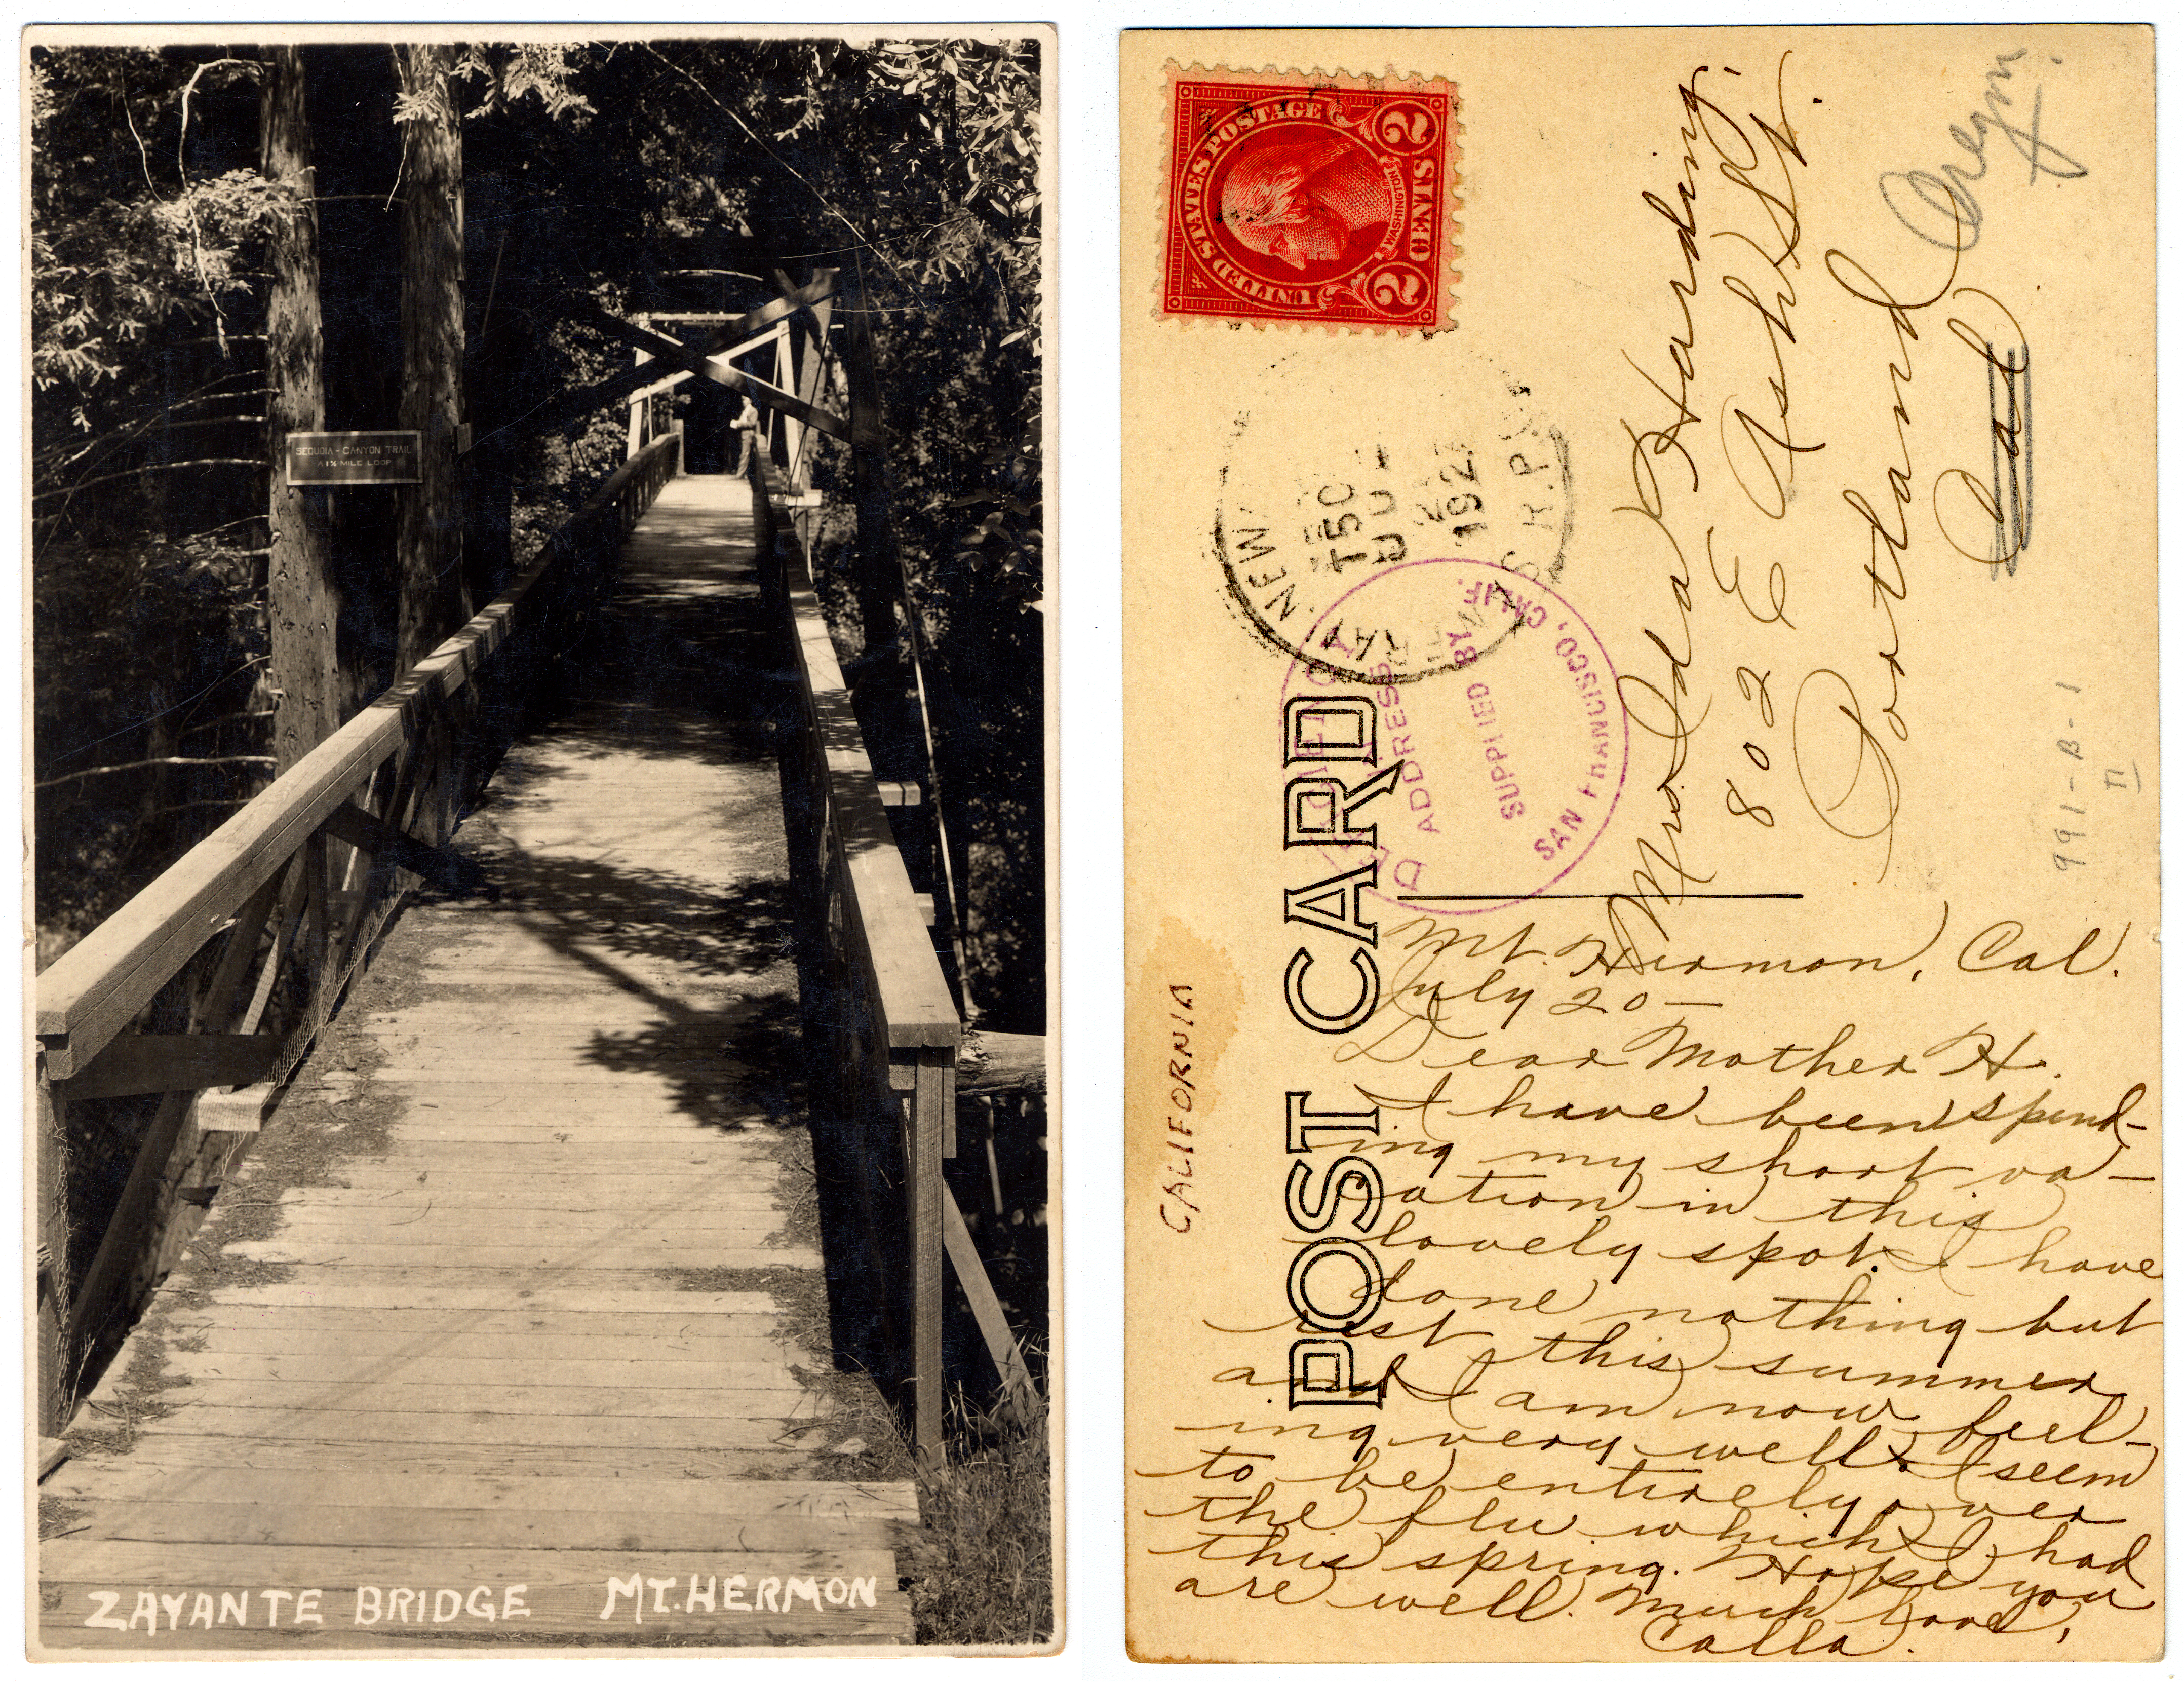 SEQUOIA - CANYON TRAIL
A 1¼ MILE LOOP
ZAYANTE BRIDGE MT. HERMON
UNITED STATES POSTAGE
WASHINGTON
2 CENTS 2
NEW
RAY
T50
JUL
192
R.P.O.
ADDRESS
SUPPLIED BY
SAN FRANCISCO, CALIF.
POST CARD
CALIFORNIA
Mrs Ida Harding.
802 E Ash St.
Portland
Cal
Oregon.
991-B-1
II
Mt. Hermon, Cal.
July 20 —
Dear Mother H.
I have been spend-
ing my short va-
cation in this
lovely spot. I have
done nothing but
rest this summer
and I am now feel-
ing very well. I seem
to be entirely over
the flu which I had
this spring. Hope you
are well. Much love,
Calla.